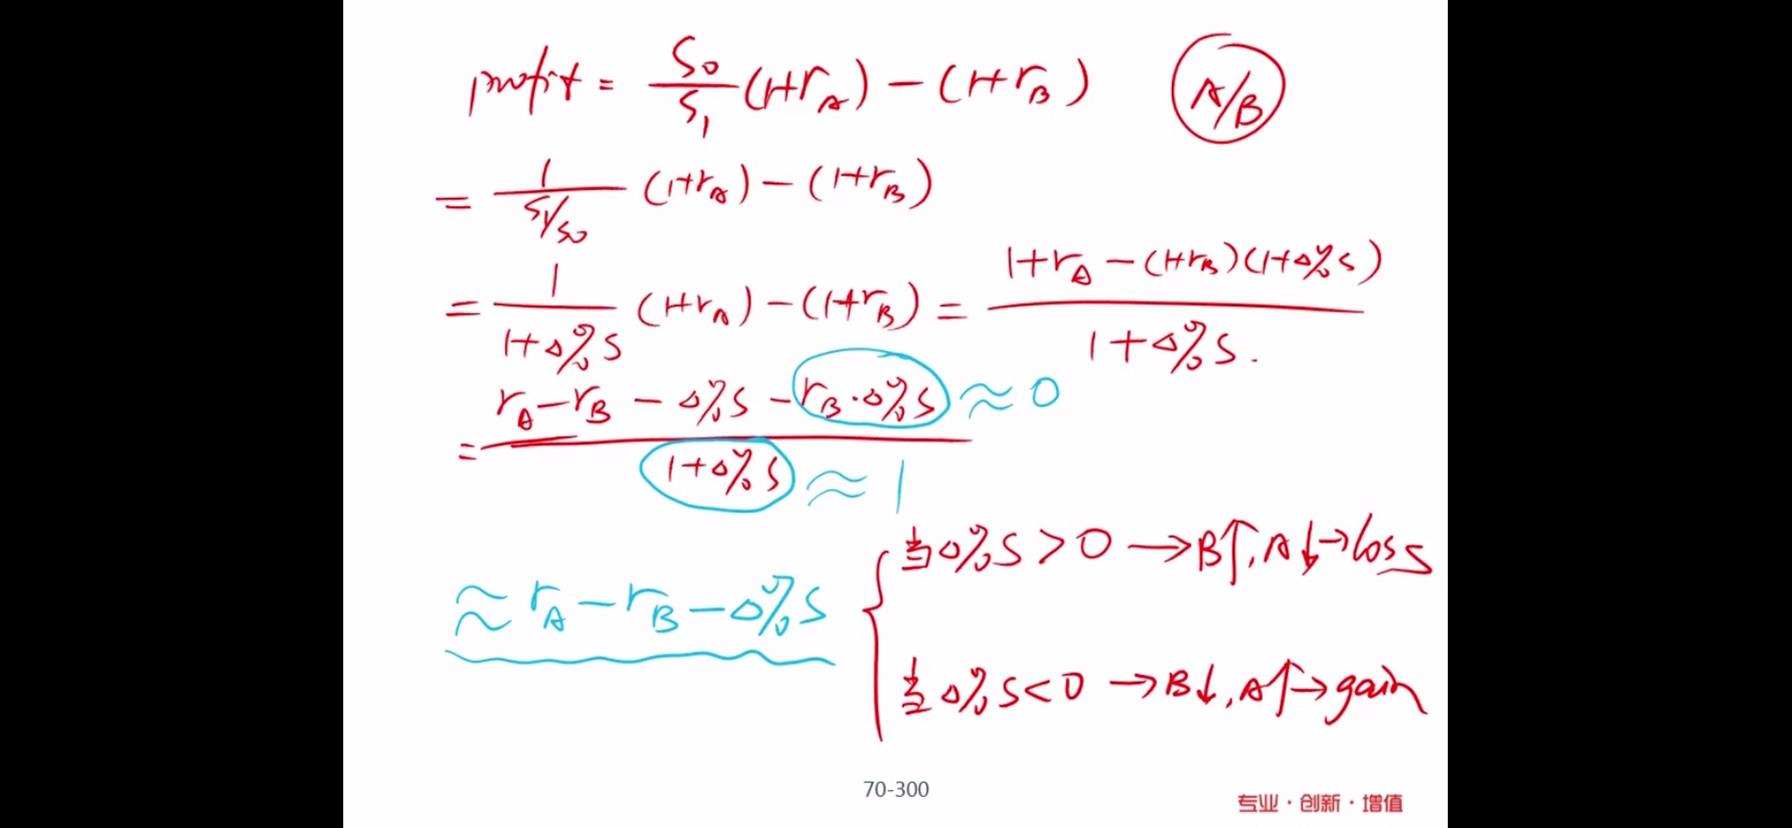 profit = S₀/S₁ (1+r_A) − (1+r_B) A/B
= 1/(S₁/S₀) (1+r_A) − (1+r_B)
= 1/(1+Δ%S) (1+r_A) − (1+r_B) = (1+r_A − (1+r_B)(1+Δ%S))/(1+Δ%S).
= (r_A − r_B − Δ%S − r_B·Δ%S)/(1+Δ%S)
≈ 0
≈ 1
≈ r_A − r_B − Δ%S
当Δ%S > 0 → B↑, A↓ → loss
当Δ%S < 0 → B↓, A↑ → gain
70-300
专业·创新·增值